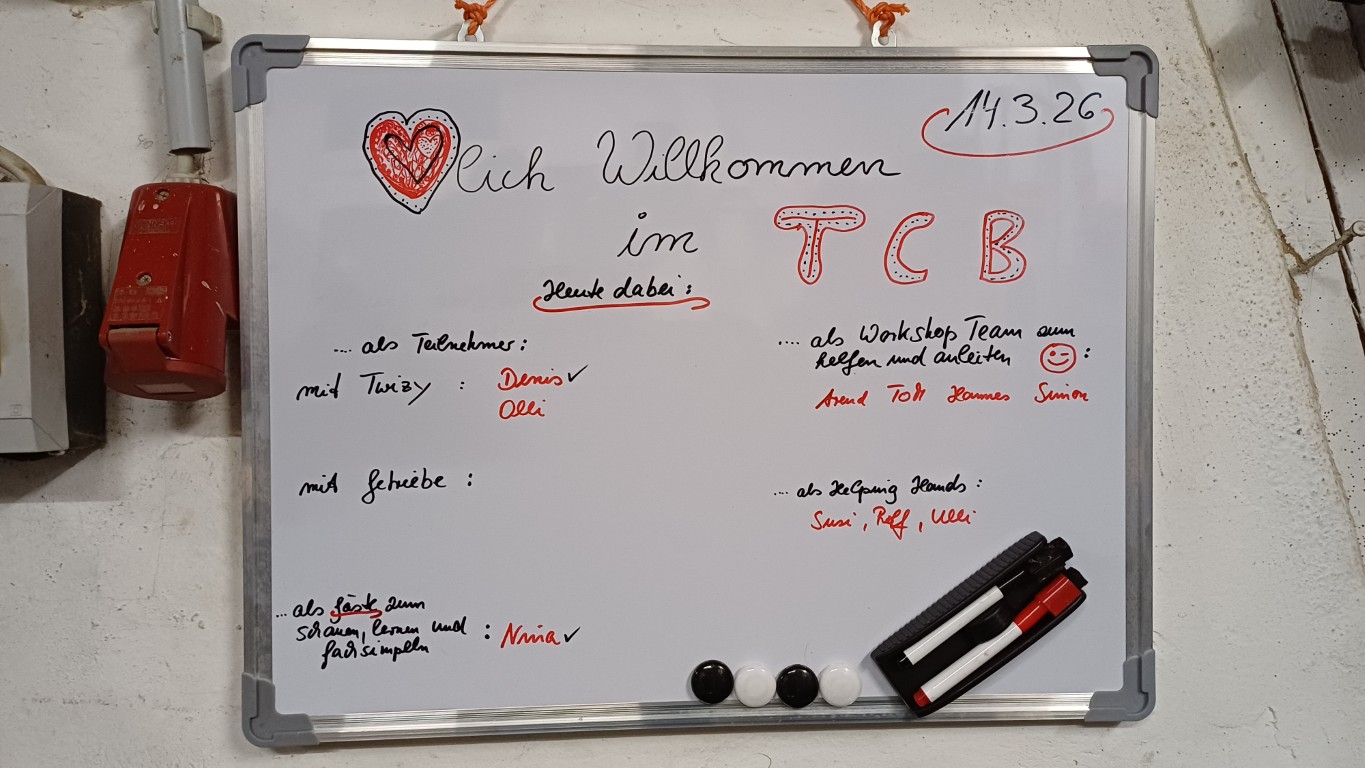 14.3.26
❤lich Willkommen
im TCB
Heute dabei:
.... als Teilnehmer:
mit Twizy : Denis ✓
Olli
mit Getriebe :
... als Gäste zum
schauen, lernen und : Nina ✓
fachsimpeln
.... als Workshop Team zum
helfen und anleiten 😉 :
Arend Tom Hannes Simon
... als Helping Hands :
Susi, Rolf, Ulli